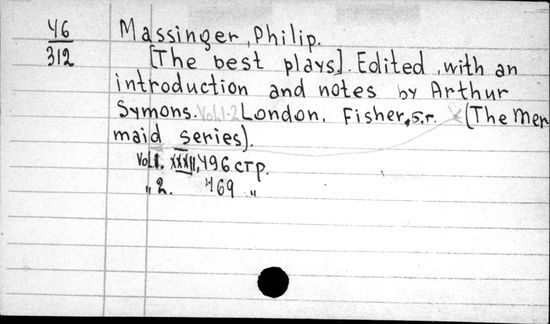 46
312
Massinger, Philip.
[The best plays]. Edited, with an
introduction and notes by Arthur
Symons. Vol.1-2 London, Fisher, s.r. (The Mer
maid series).
Vol.1. XXXII, 496 стр.
„ 2. 469 „